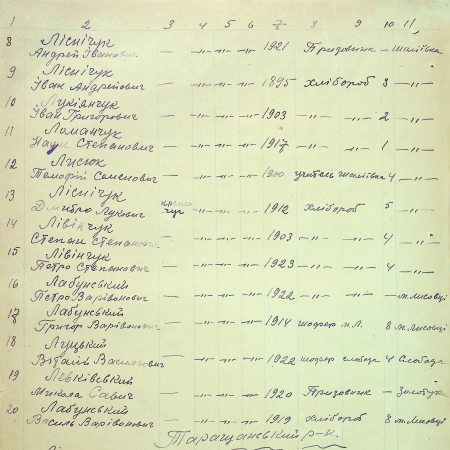 1 2 3 4 5 6 7 8 9 10 11
8 Ліснічук
Андрей Іванович — —"— —"— —"— 1921 Призовник — Шаліївка
9 Ліснічук
Іван Андрейович — —"— —"— —"— 1895 хлібороб 3 —"—
10 Луківчук
Іван Григорович — —"— —"— —"— 1903 —"— —"— 2 —"—
11 Ломанчук
Наум Степанович — —"— —"— —"— 1917 —"— —"— 1 —"—
12 Лисюк
Тимофій Семенович — —"— —"— —"— 1900 учитель Шаліївка 4 —"—
13 Ліснічук
Дмитро Лукович —"— —"— —"— 1912 хлібороб 5 —"—
14 Лівінчук
Степан Степанович — —"— —"— —"— 1903 —"— —"— 4 —"—
15 Лівінчук
Петро Степанович — —"— —"— —"— 1923 —"— —"— 4 —"—
16 Лабунський
Петро Варівонович — —"— —"— —"— 1922 —"— —"— — м.Лисовці
17 Лабунський
Григор Варівонович — —"— —"— —"— 1914 шофер м.Л. 8 м.Лисовці
18 Луцький
Віталій Васильович — —"— —"— —"— 1922 шофер слобода 4 Слобода
19 Левківський
Микола Савич — —"— —"— —"— 1920 Призовник —
20 Лабунський
Василь Варівонович — —"— —"— —"— 1919 Хлібороб 8 м.Лисовці
Таращанський р-н.